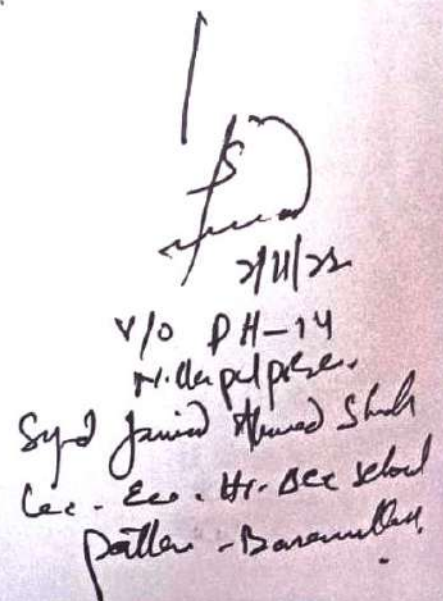 2/11/22
V/O PH-14
Syed Javid Ahmed Shah
Lec. Eco. Hr. Sec School
Pattan - Baramulla.